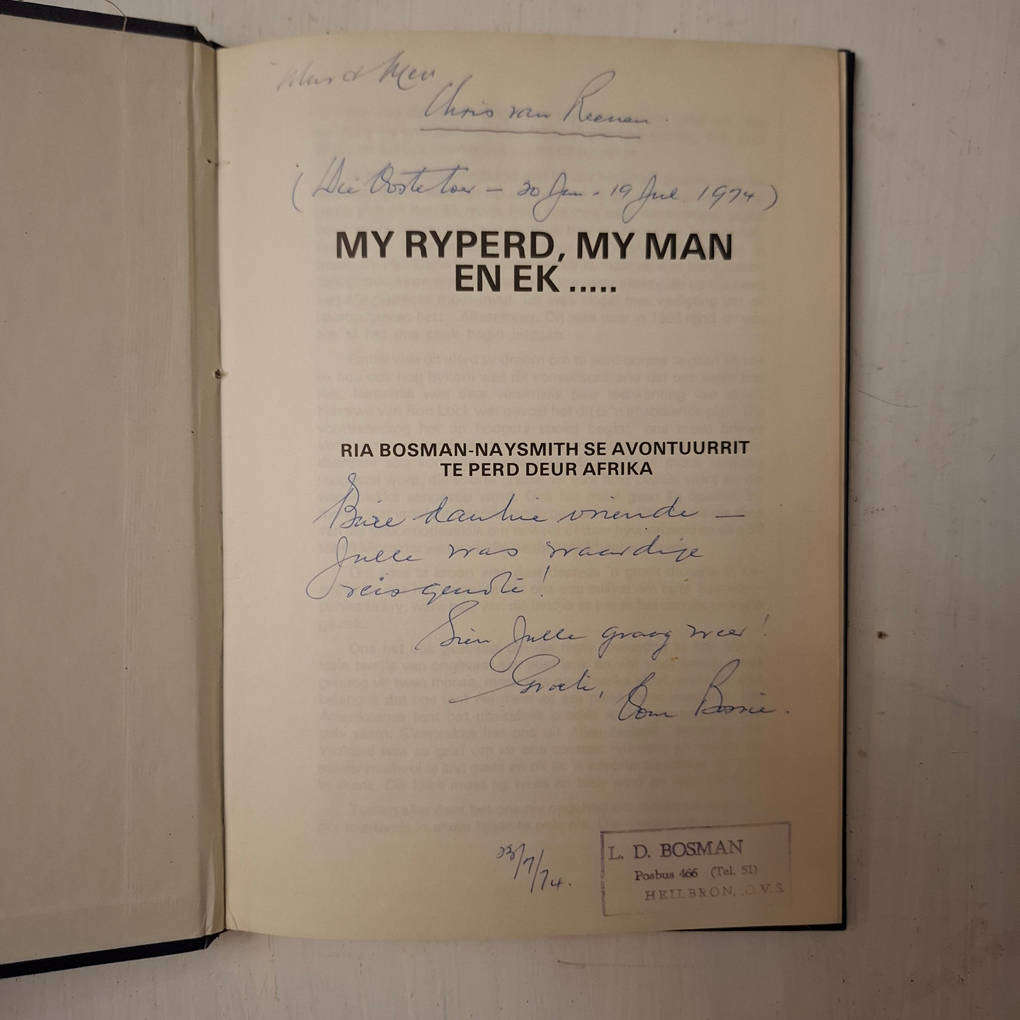 Mnr & Mev
Chris van Reenen.
(Die Oostetoer - 20 Jun - 19 Jul 1974)
MY RYPERD, MY MAN
EN EK .....
RIA BOSMAN-NAYSMITH SE AVONTUURRIT
TE PERD DEUR AFRIKA
Baie dankie vriende -
Julle was waardige
reisgenote!
Sien Julle graag weer!
Groete,
Oom Bossie.
23/7/74.
L. D. BOSMAN
Posbus 466 (Tel. 51)
HEILBRON, O.V.S.